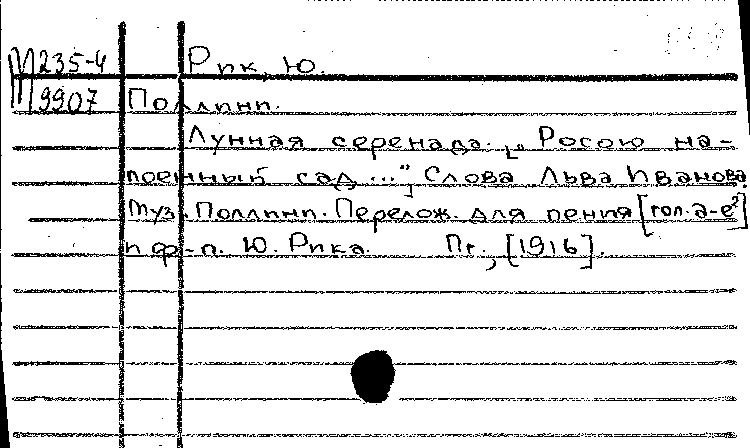 М 235-4 Рик, Ю.
9907 Поллини.
Лунная серенада. [„Росою на-
поенный сад ...“] Слова Льва Иванова.
Муз. Поллини. Перелож. для пения [гол. а-е²]
и ф-п. Ю. Рика. Пг., [1916].